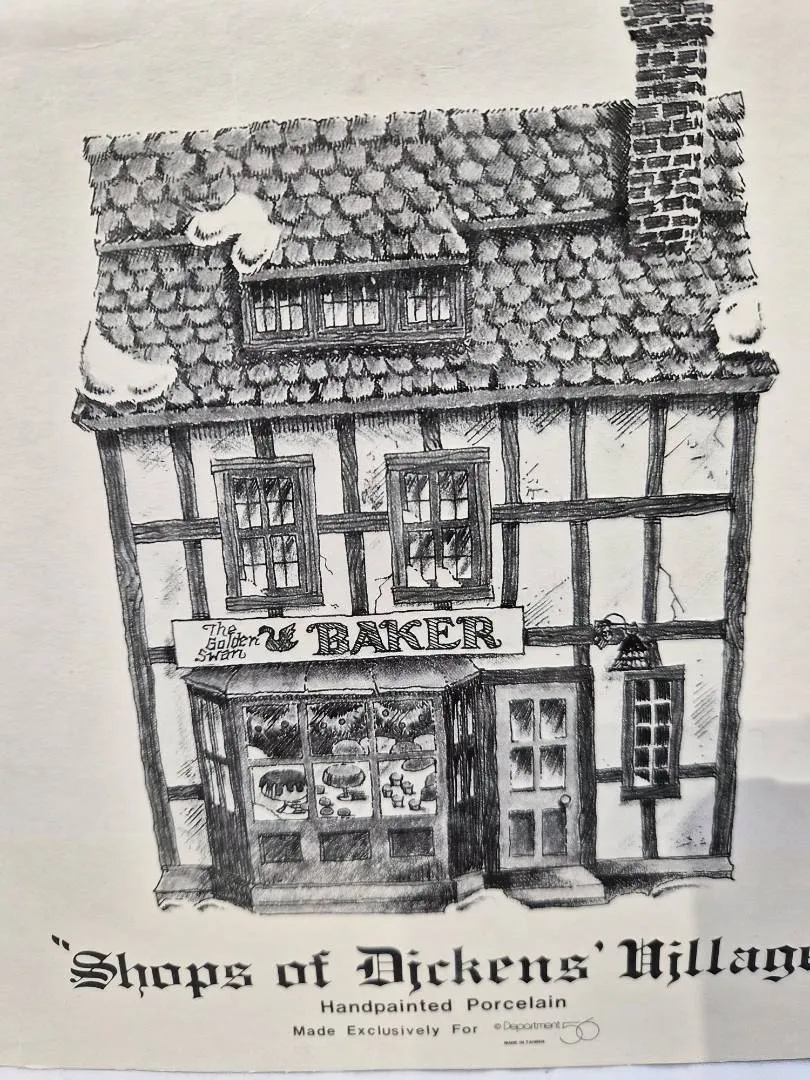 The
Golden
Swan
BAKER
"Shops of Dickens' Village
Handpainted Porcelain
Made Exclusively For © Department 56
MADE IN TAIWAN